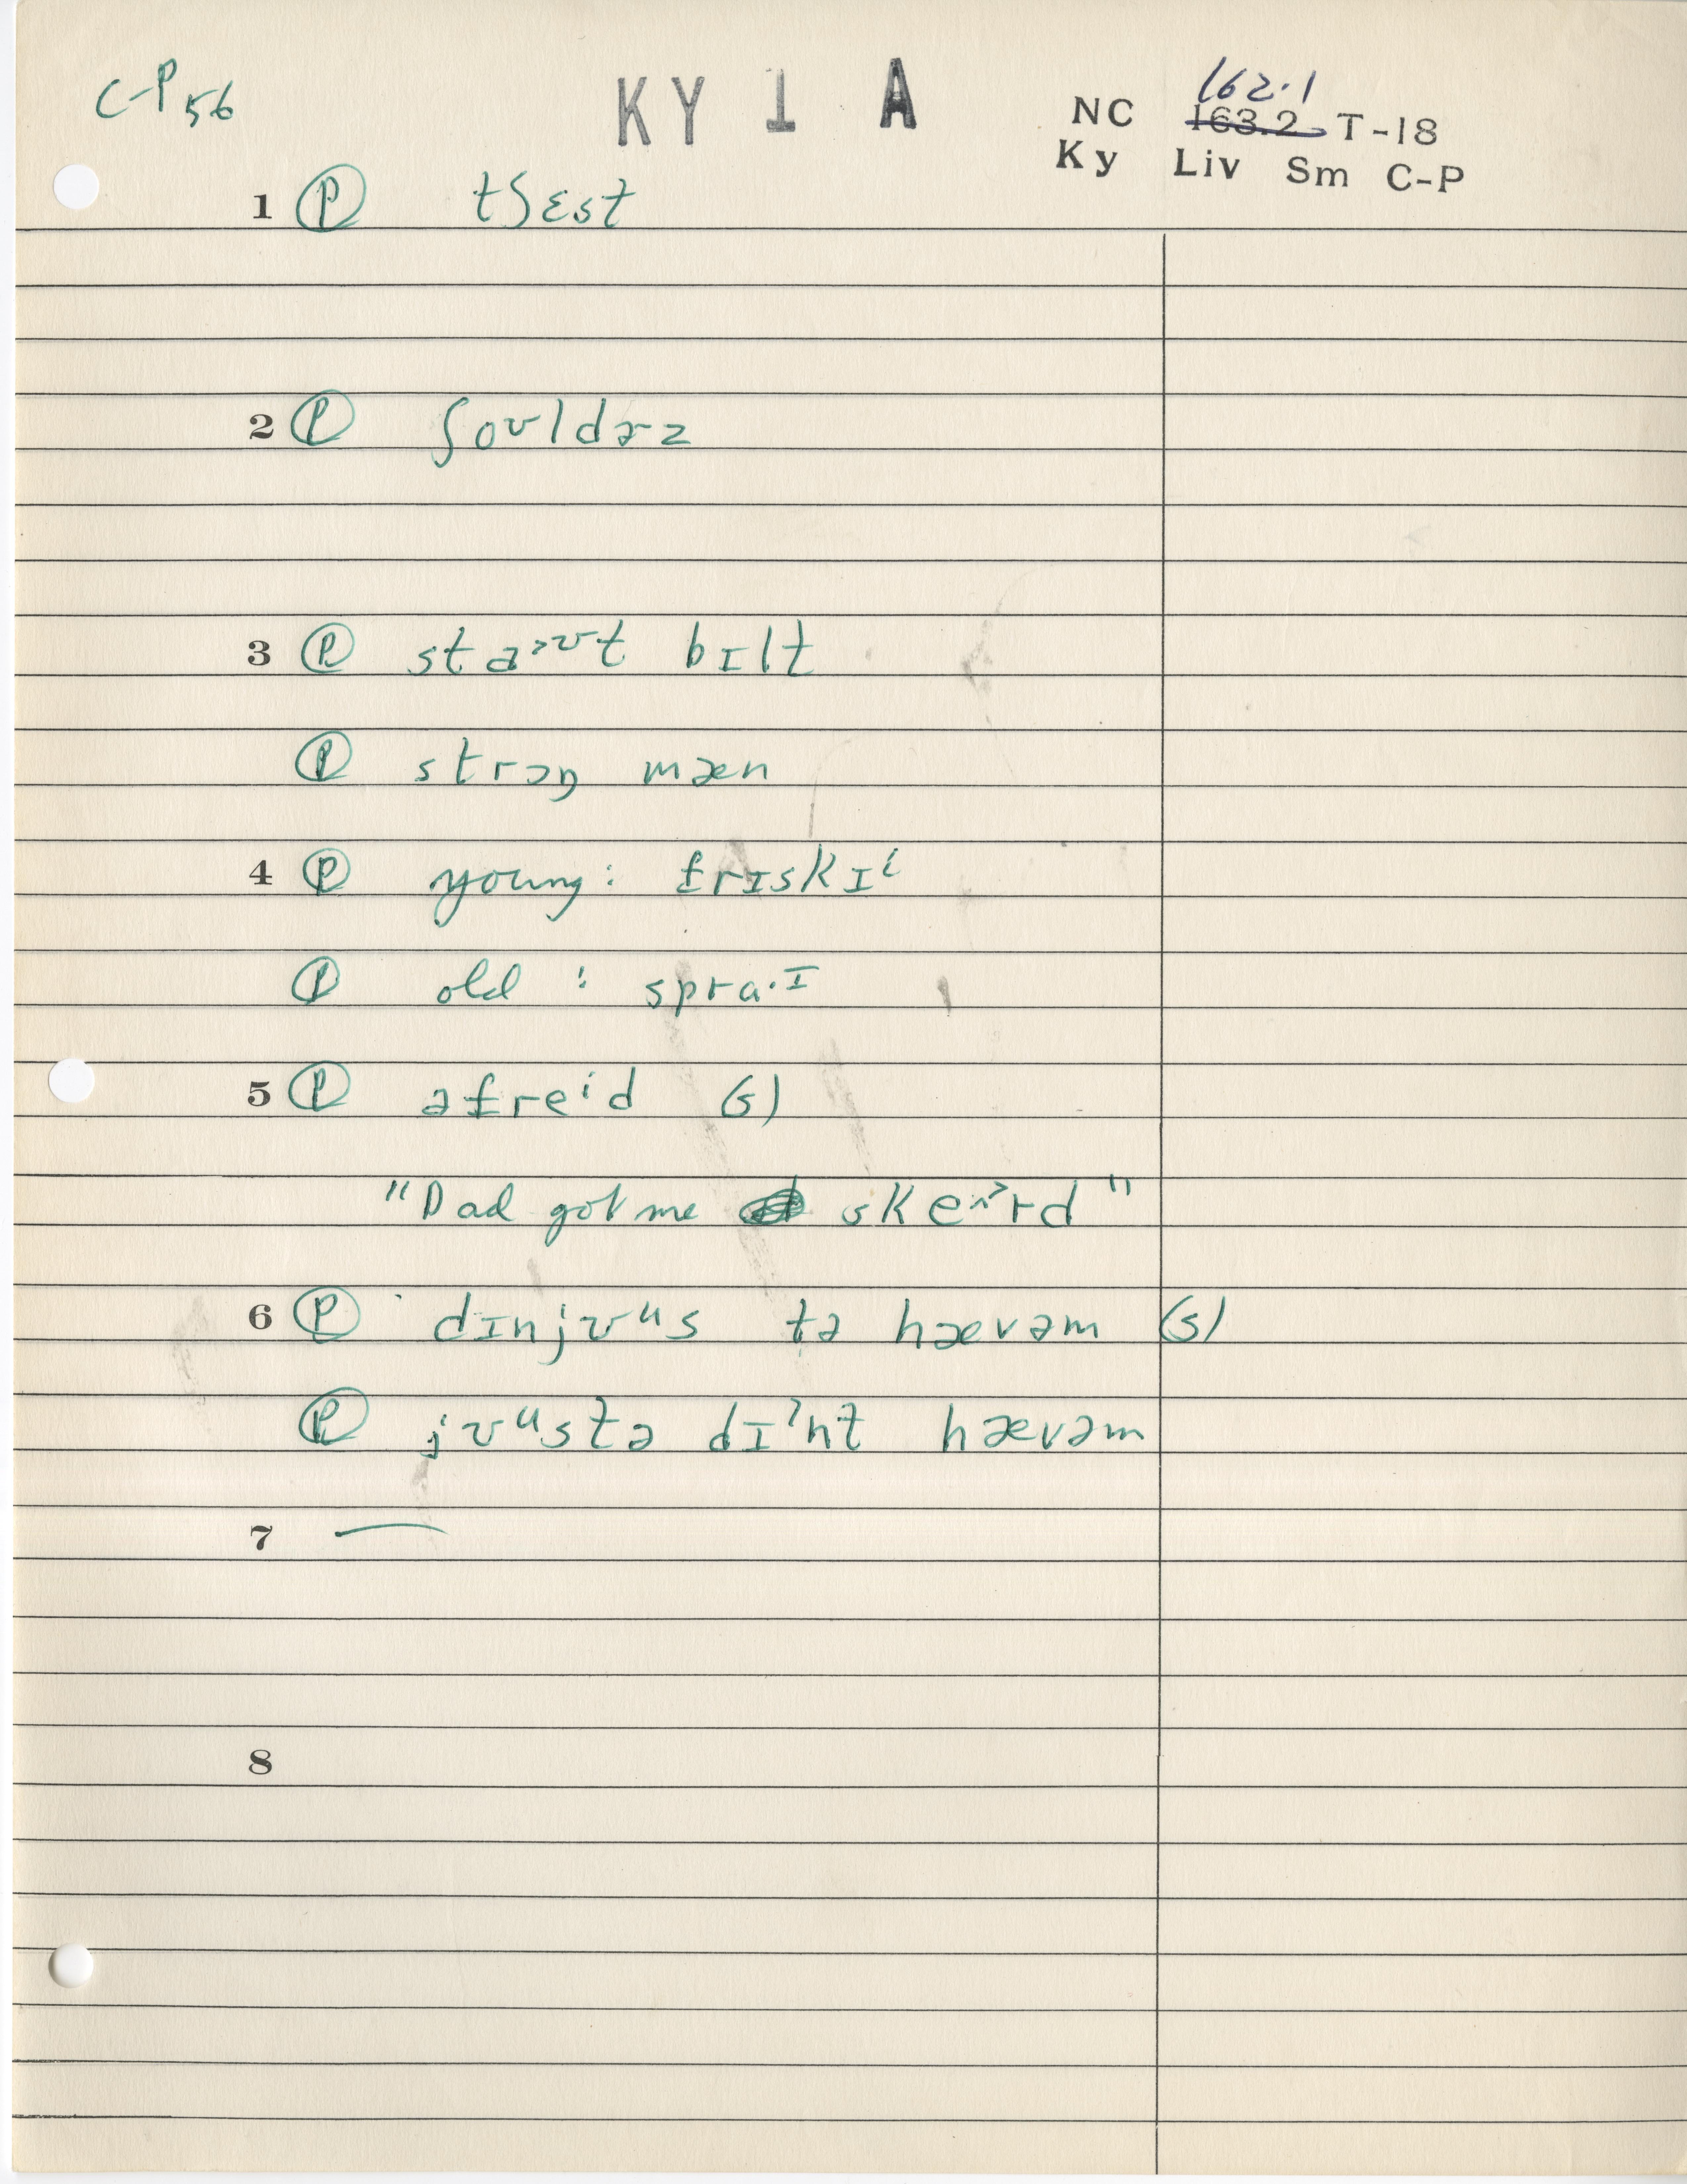 C-P 56
KY 1 A
162.1
NC 163.2 T-18
Ky Liv Sm C-P
1 Ⓟ tʃɛst
2 Ⓟ ʃoʊldɚz
3 Ⓟ sta˃ʊt bɪlt
Ⓟ strɔŋ mæn
4 Ⓟ young: frɪskɪⁱ
Ⓟ old: spra·ɪ
5 Ⓟ əfreⁱd (s)
"Dad got me ske^˃rd"
6 Ⓟ dɪnjʊᵘs tə hævəm (s)
Ⓟ jʊᵘstə dɪˀnt hævəm
7 —
8